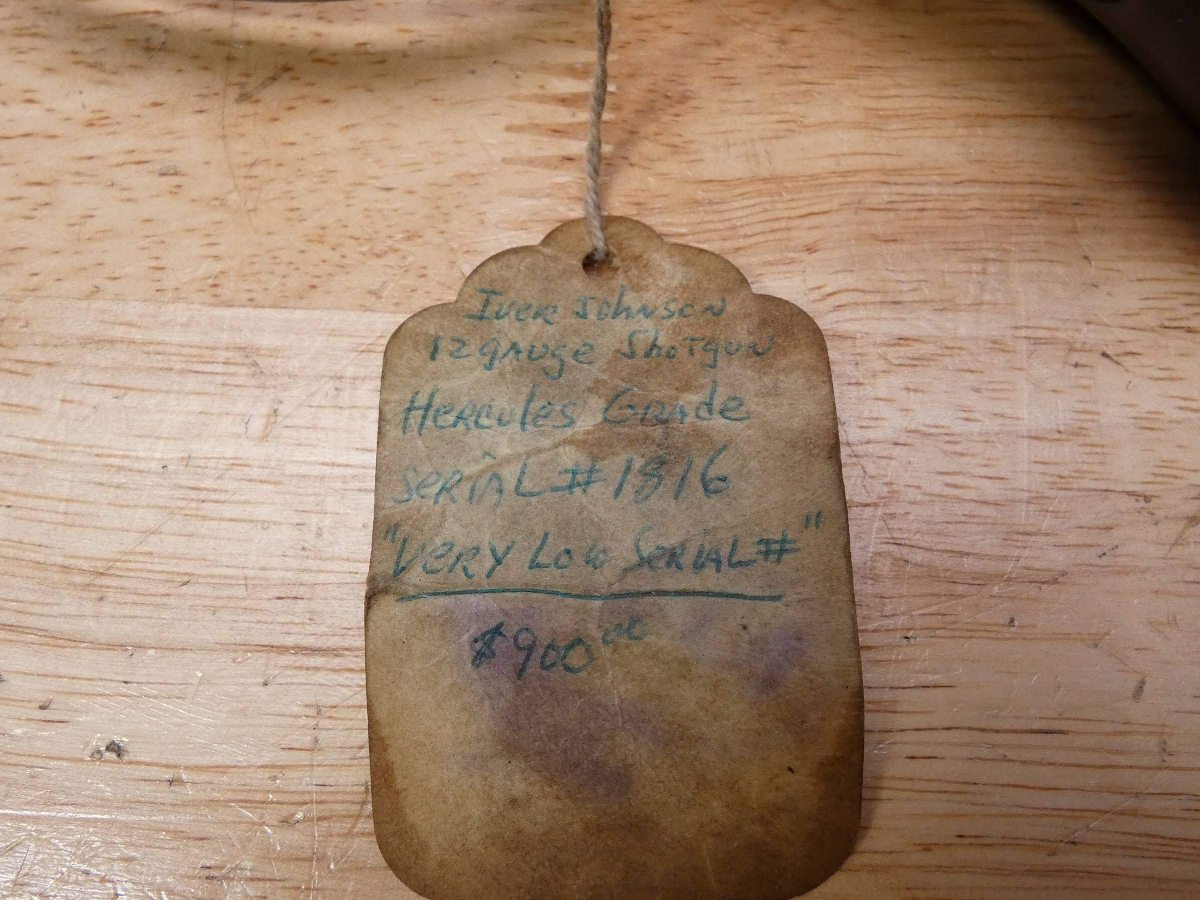 Iver Johnson
12 gauge Shotgun
Hercules Grade
Serial # 1816
"Very Low Serial #"
$900 00